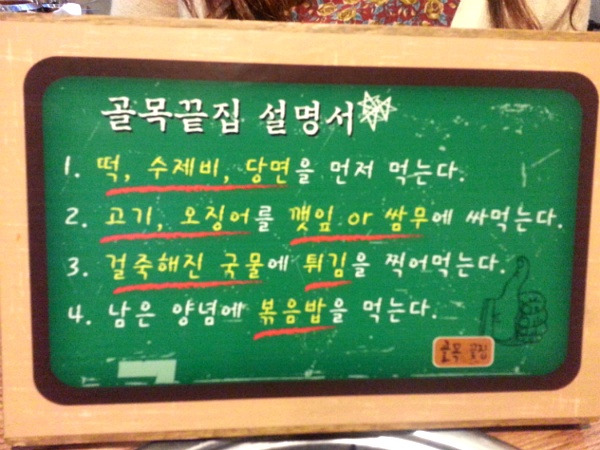 골목끝집 설명서
1. 떡, 수제비, 당면을 먼저 먹는다.
2. 고기, 오징어를 깻잎 or 쌈무에 싸먹는다.
3. 걸죽해진 국물에 튀김을 찍어먹는다.
4. 남은 양념에 볶음밥을 먹는다.
골목 끝집